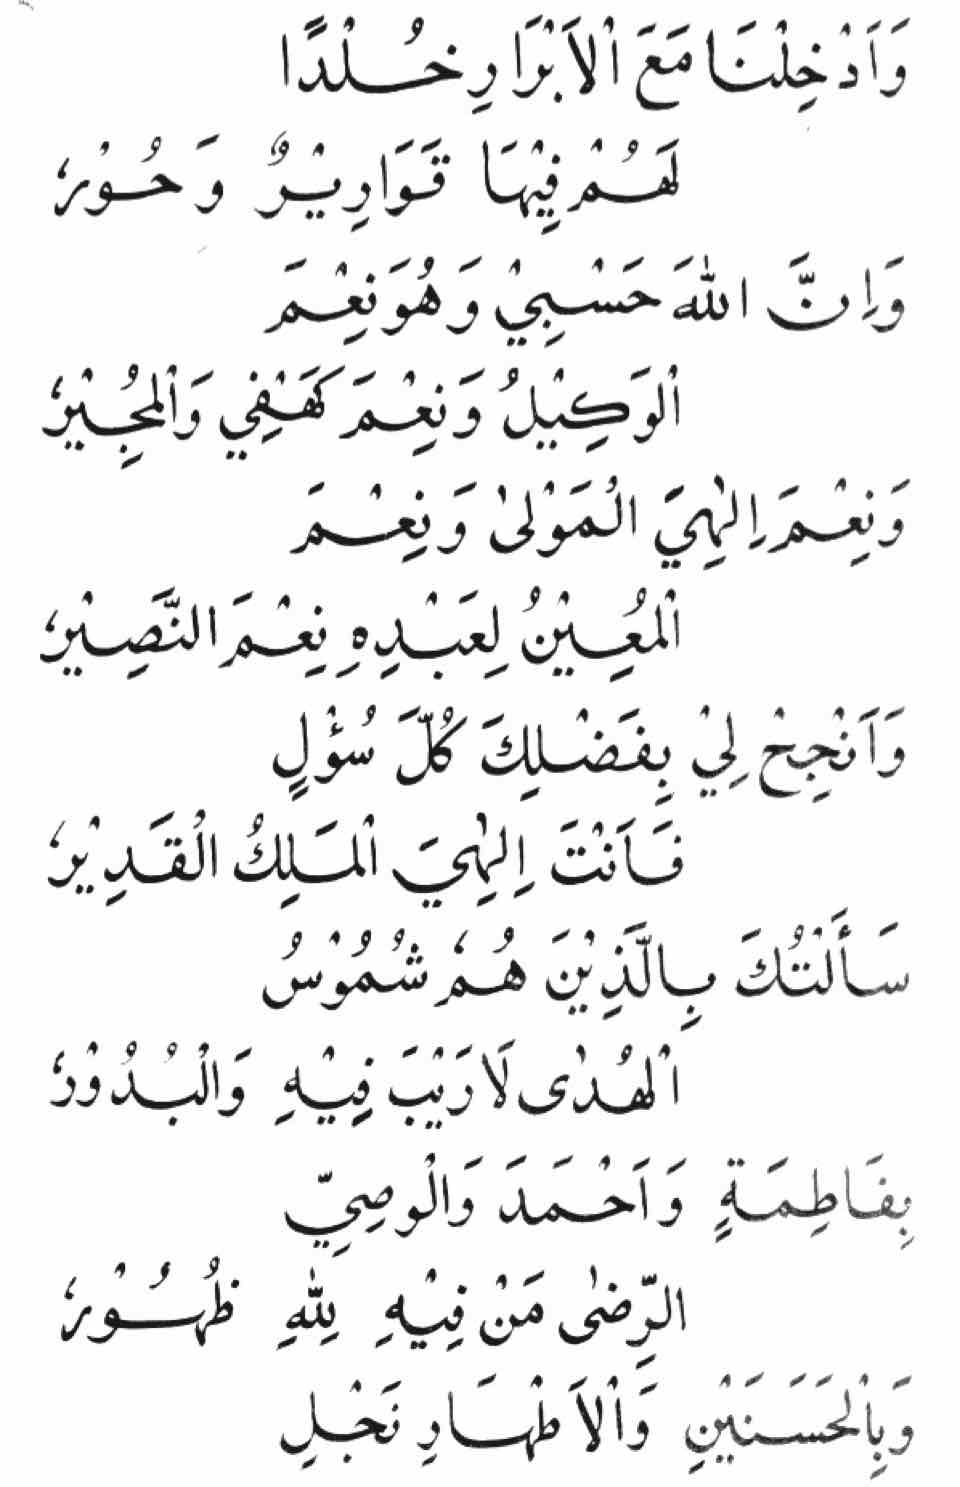 وَاَدْخِلْنَا مَعَ اْلاَبْرَارِ خُلْدًا
لَهُمْ فِيْهَا قَوَارِيْرٌ وَحُوْرٗ
وَاِنَّ اللهَ حَسْبِيْ وَهُوَ نِعْمَ
اْلوَكِيْلُ وَنِعْمَ كَهَفِي وَاْلمُجِيْرٗ
وَنِعْمَ اِلٰهِيَ الْمَوْلىٰ وَنِعْمَ
اْلمُعِيْنُ لِعَبْدِهِ نِعْمَ النَّصِيْرٗ
وَاَنْجِحْ لِيْ بِفَضْلِكَ كُلَّ سُؤْلٍ
فَاَنْتَ اِلٰهِيَ اْلمَلِكُ الْقَدِيْرٗ
سَأَلْتُكَ بِالَّذِيْنَ هُمْ شُمُوْسُ
اْلهُدٰى لَا رَيْبَ فِيْهِ وَالْبُدُوْرٗ
بِفَاطِمَةٍ وَاَحْمَدَ وَالْوصِيِّ
الرِّضٰى مَنْ فِيْهِ لِلّٰهِ ظُهُوْرٗ
وَبِاْلحَسَنَيْنِ وَاْلاَطْهَارِ نَجْلِ